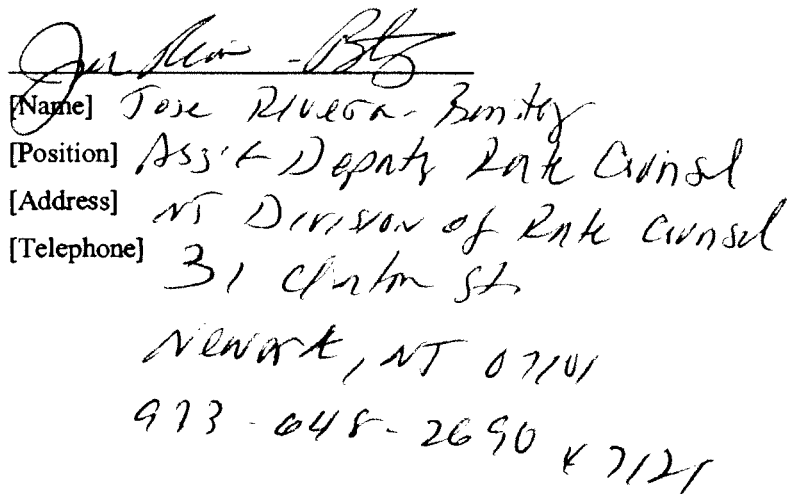 [Name] Jose Rivera-Benitez
[Position] Ass't Deputy Rate Counsel
[Address] NJ Division of Rate Counsel
[Telephone]
31 Clinton St.
Newark, NJ 07101
973-648-2690 x7121